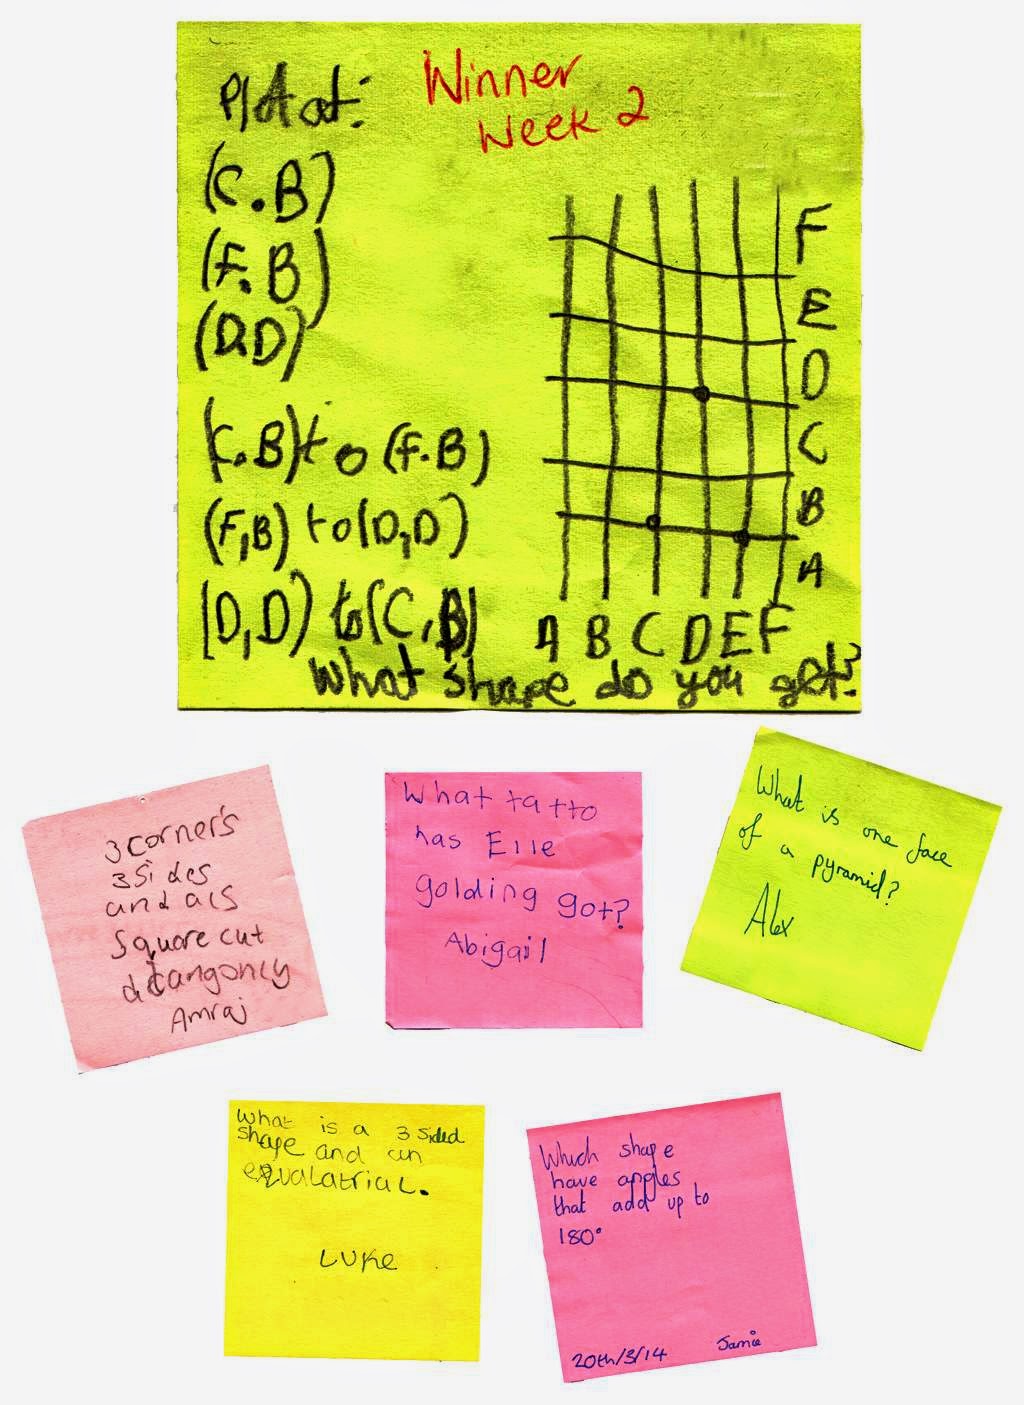 Plot at:
Winner
Week 2
(C.B)
(F.B)
(D.D)
(C.B) to (F.B)
(F,B) to (D,D)
(D,D) to (C,B)
F
E
D
C
B
A
A B C D E F
What shape do you get?
3 corner's
3 sides
and als
Square cut
diangonly
Amraj
What tatto
has Elle
golding got?
Abigail
What is one face
of a pyramid?
Alex
What is a 3 sided
shape and an
equalatrial.
Luke
Which shape
have angles
that add up to
180°
20th/3/14 Jamie